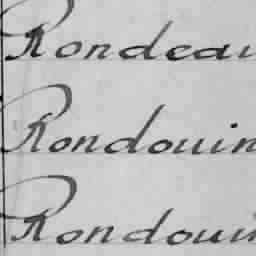 Rondeau
Rondouin
Rondouin